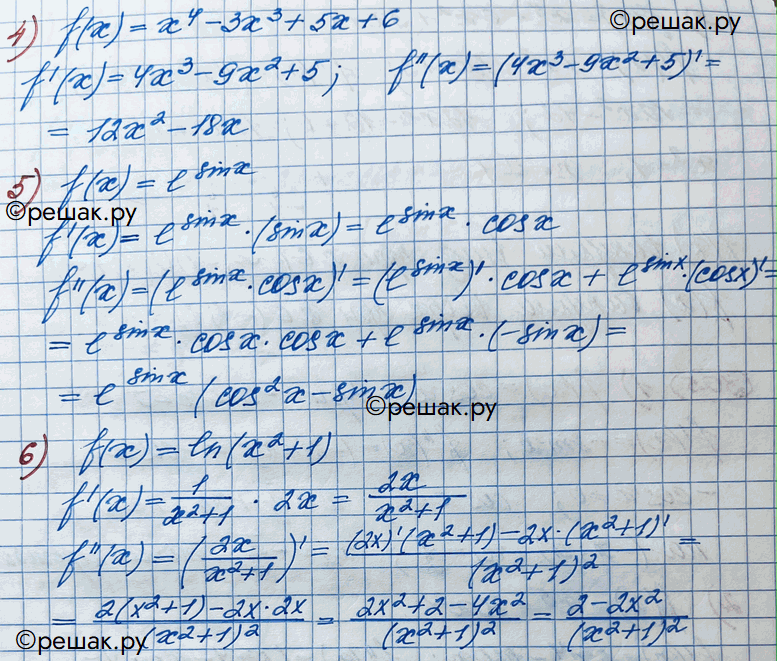 ©решак.ру
4) f(x) = x⁴ - 3x³ + 5x + 6
f'(x) = 4x³ - 9x² + 5; f''(x) = (4x³ - 9x² + 5)' =
= 12x² - 18x
5) f(x) = e^{sinx}
©решак.ру
f'(x) = e^{sinx} · (sinx) = e^{sinx} · cosx
f''(x) = (e^{sinx} · cosx)' = (e^{sinx})' · cosx + e^{sinx} · (cosx)' =
= e^{sinx} · cosx · cosx + e^{sinx} · (-sinx) =
= e^{sinx} (cos²x - sinx)
©решак.ру
6) f(x) = ln(x² + 1)
f'(x) = \frac{1}{x²+1} · 2x = \frac{2x}{x²+1}
f''(x) = (\frac{2x}{x²+1})' = \frac{(2x)'(x²+1) - 2x · (x²+1)'}{(x²+1)²} =
= \frac{2(x²+1) - 2x · 2x}{(x²+1)²} = \frac{2x² + 2 - 4x²}{(x²+1)²} = \frac{2 - 2x²}{(x²+1)²}
©решак.ру